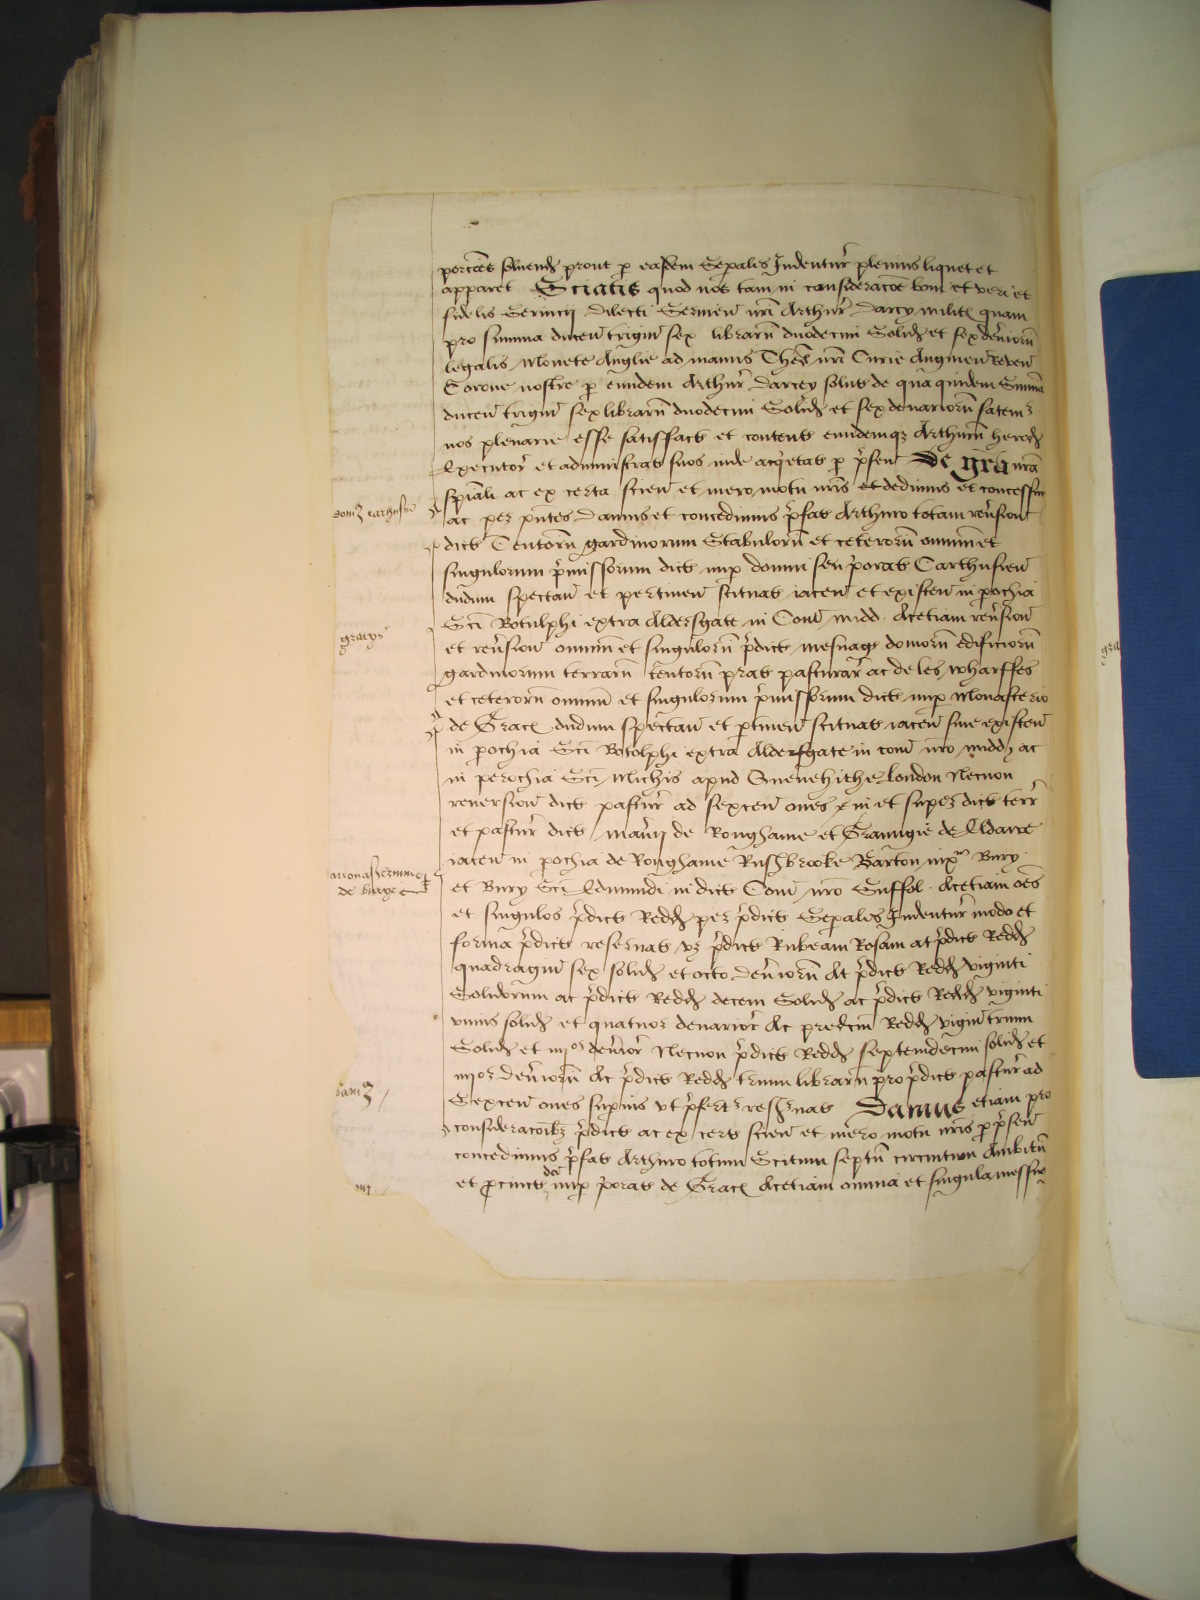 porcōes soluend prout p easdem Sepales Indentur̄ plenius liquet et
apparet Sciatis quod nos tam in consideracōe boni et veri et
fidelis Seruicij dilecti Seruien nr̄i Arthur̄ Darcy milit quam
pro summa ducen trigin sex librarū duodecim Solid et sex denr̄iorū
legalis Monete Anglie ad manus Thes nr̄i Curie Augmen Reuen
Corone nostre p eundem Arthur̄ Darcey solut de qua quidem Sum̄a
ducen trigin sex librarū duodecim Solid et sex denariorū fatem
nos plenarie esse satisfact et content eundemqz Arthurū hered
Executor̄ et administrat suos inde acq̄etat p p̄sen De gr̄a nr̄a
sp̄iali ac ex certa scien et mero motu nr̄is et dedimus et concessim
ac per p̄ntes Damus et concedimus p̄fat Arthuro totam reūsion
domz carthusien
dict Tentorū gardinorum Stabulorū et ceterorū omniū et
singulorum p̄missorum dict nup domui seu p̄orat Carthusien
dudum spectan et pertinen scituat iacen et existen in pochia
Sci Botulphi extra Aldersgate in Com Midd Acetiam reūsion
gracys
et reūsion omniū et singulorū p̄dict mesuag domorū edificiorū
gardinorum terrarū tentorū prat pasturar̄ ac de les wharffes
et ceterorū omniū et singulorum p̄missorum dict nup Monasterio
de Grac dudum spectan et ptinen scituat iacen siue existen
in pochia Sci Botolphi extra Aldersgate in com nr̄o midd ac
in perochia Sci Michis apud Quenehithe London Necnon
reuersion dict pastur̄ ad sexcen oues in et super dict terr̄
et pastur̄ dict man̄ij de Roughame et Graungie de Eldawe
iacen in pochia de Roughame Russhbrooke Barton iuxa Bury
monasterium
de burye
et Bury Sci Edmundi in dict Com nr̄o Suffol Acetiam oēs
et singulos p̄dict Redd per p̄dict Sepales Indentur̄ modo et
forma p̄dict reseruat vz p̄dict Rubeam Rosam ac p̄dict Redd
quadragin sex solid et octo den̄iorū Ac p̄dict Redd viginti
Solidorum ac p̄dict Redd decem Solid ac p̄dict Redd viginti
vnius solid et quatuor denarior̄ Ac pred̄cm Redd vigin trium
Solid et iiijor den̄ior̄ Necnon p̄dict Redd septemdecim solid et
iiijor den̄iorū Ac p̄dict Redd trium librarū pro p̄dict pastur̄ ad
damz
Sexcen oues supius vt p̄fert reseruat Damus etiam pro
consideracōibz p̄dict ac ex cert scien et mero motu nr̄is p p̄sen
concedimus p̄fat Arthuro totum Scitum septū circuitum Ambitū
et p̄cinct dc̄e nup p̄orat de Grac Acetiam omnia et singula messue